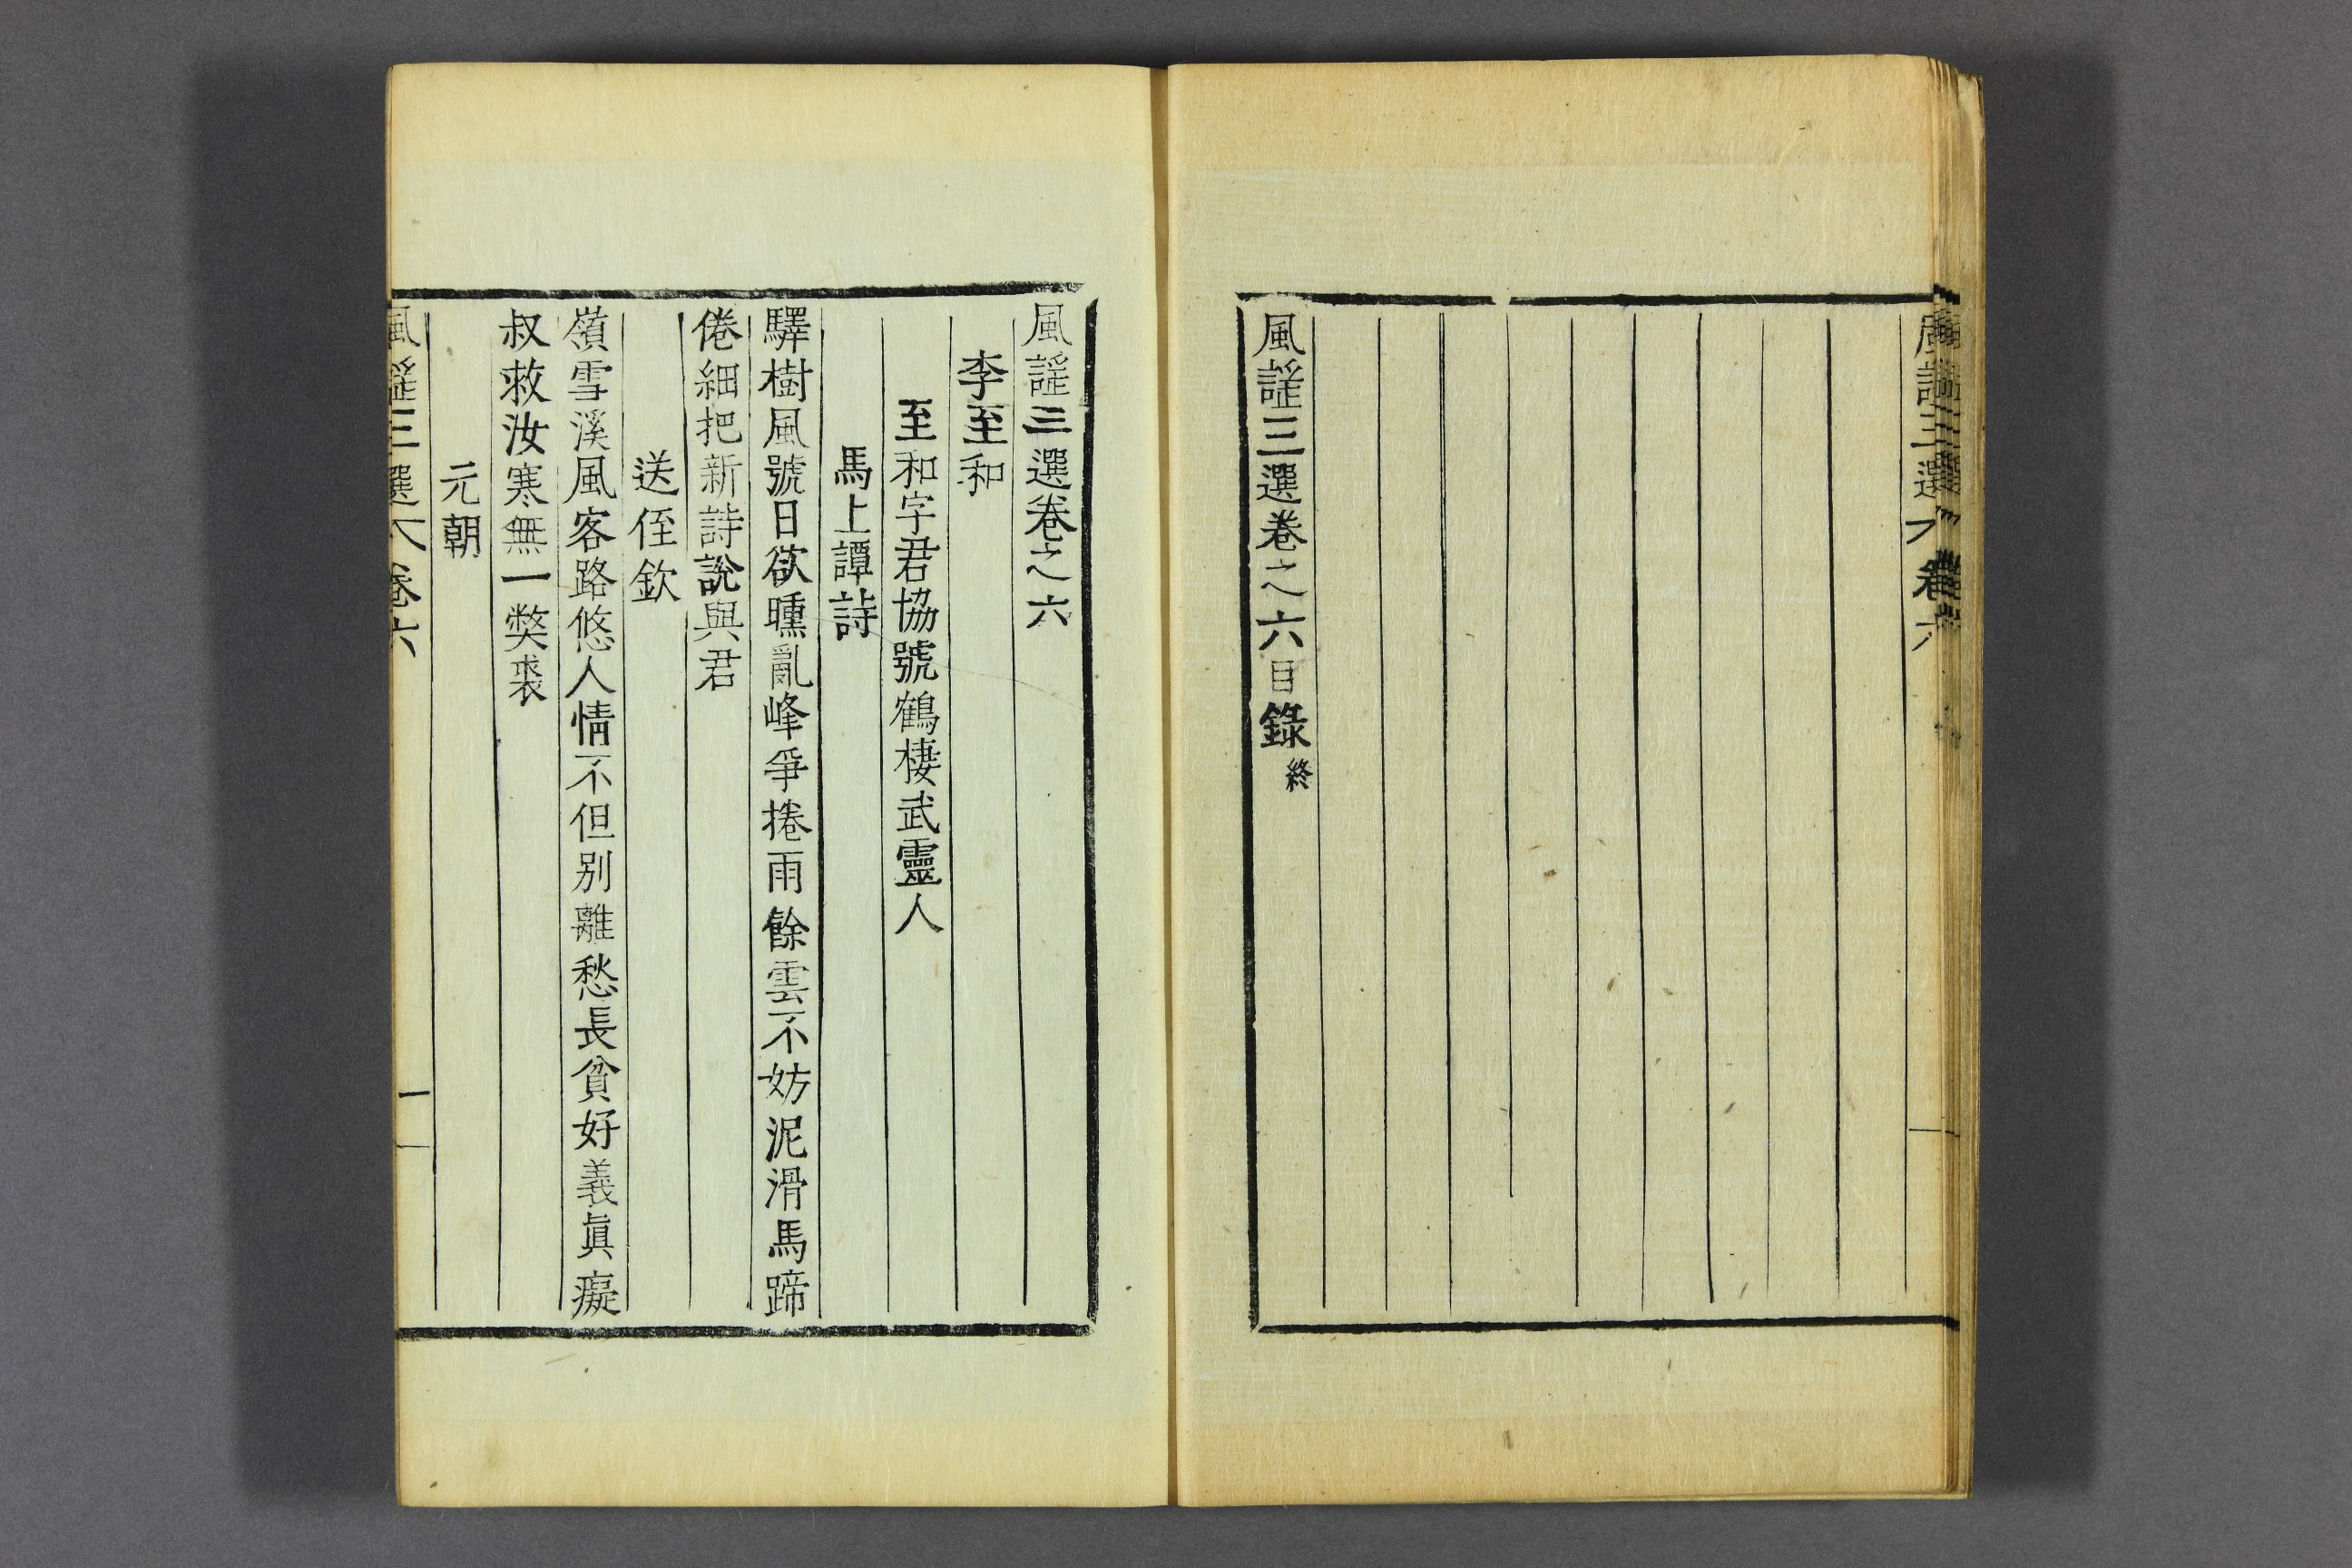 風謠三選 卷六
風謠三選卷之六目錄 終
風謠三選卷之六
李至和
至和字君協號鶴棲武靈人
馬上譚詩
驛樹風號日欲曛亂峰爭捲雨餘雲不妨泥滑馬蹄
倦細把新詩說與君
送侄欽
嶺雪溪風客路悠人情不但別離愁長貧好義眞癡
叔救汝寒無一獘裘
元朝
風謠三選 卷六 一